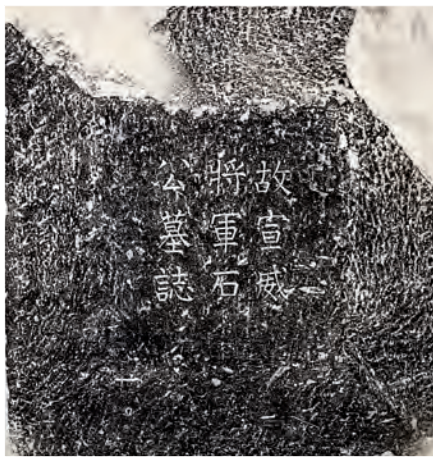 故宣威
將軍石
公墓誌